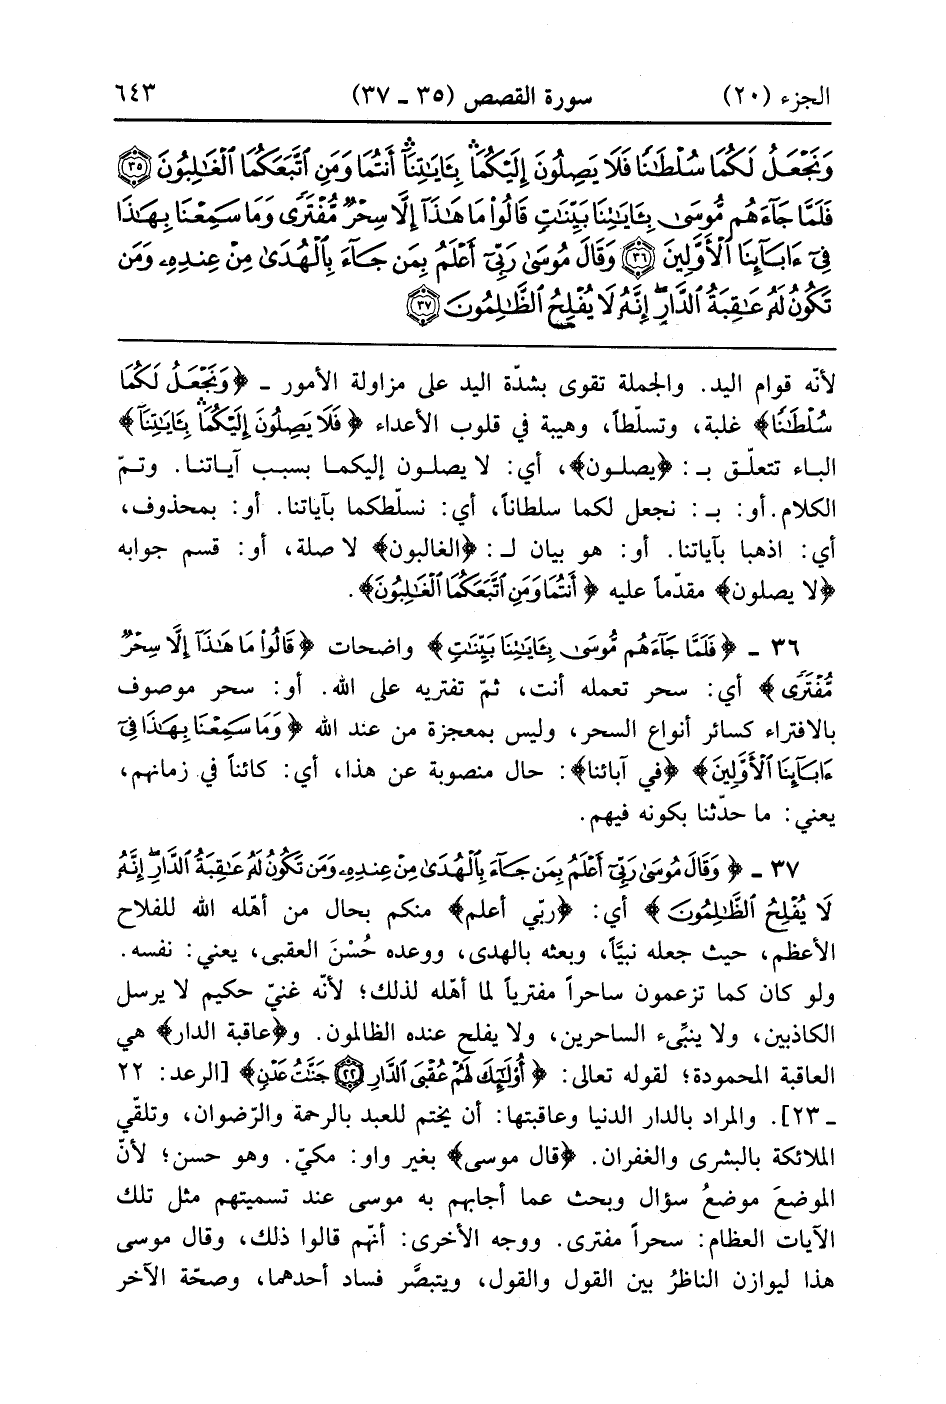 الجزء (٢٠) سورة القصص (٣٥ - ٣٧) ٦٤٣
وَنَجْعَلُ لَكُمَا سُلْطَٰنًا فَلَا يَصِلُونَ إِلَيْكُمَا ۚ بِـَٔايَٰتِنَآ ۚ أَنتُمَا وَمَنِ ٱتَّبَعَكُمَا ٱلْغَٰلِبُونَ ﴿٣٥﴾
فَلَمَّا جَآءَهُم مُّوسَىٰ بِـَٔايَٰتِنَا بَيِّنَٰتٍ قَالُوا۟ مَا هَٰذَآ إِلَّا سِحْرٌ مُّفْتَرًى وَمَا سَمِعْنَا بِهَٰذَا
فِىٓ ءَابَآئِنَا ٱلْأَوَّلِينَ ﴿٣٦﴾ وَقَالَ مُوسَىٰ رَبِّىٓ أَعْلَمُ بِمَن جَآءَ بِٱلْهُدَىٰ مِنْ عِندِهِۦ وَمَن
تَكُونُ لَهُۥ عَٰقِبَةُ ٱلدَّارِ ۖ إِنَّهُۥ لَا يُفْلِحُ ٱلظَّٰلِمُونَ ﴿٣٧﴾
لأنّه قوام اليد. والجملة تقوى بشدّة اليد على مزاولة الأمور - ﴿وَنَجْعَلُ لَكُمَا
سُلْطَٰنًا﴾ غلبة، وتسلّطاً، وهيبة في قلوب الأعداء ﴿فَلَا يَصِلُونَ إِلَيْكُمَا ۚ بِـَٔايَٰتِنَآ﴾
الباء تتعلّق بـ: ﴿يصلون﴾، أي: لا يصلون إليكما بسبب آياتنا. وتمّ
الكلام. أو: بـ: نجعل لكما سلطاناً، أي: نسلّطكما بآياتنا. أو: بمحذوف،
أي: اذهبا بآياتنا. أو: هو بيان لـ: ﴿الغالبون﴾ لا صلة، أو: قسم جوابه
﴿لا يصلون﴾ مقدّماً عليه ﴿أَنتُمَا وَمَنِ ٱتَّبَعَكُمَا ٱلْغَٰلِبُونَ﴾.
٣٦ - ﴿فَلَمَّا جَآءَهُم مُّوسَىٰ بِـَٔايَٰتِنَا بَيِّنَٰتٍ﴾ واضحات ﴿قَالُوا۟ مَا هَٰذَآ إِلَّا سِحْرٌ
مُّفْتَرًى﴾ أي: سحر تعمله أنت، ثمّ تفتريه على الله. أو: سحر موصوف
بالافتراء كسائر أنواع السحر، وليس بمعجزة من عند الله ﴿وَمَا سَمِعْنَا بِهَٰذَا فِىٓ
ءَابَآئِنَا ٱلْأَوَّلِينَ﴾ ﴿في آبائنا﴾: حال منصوبة عن هذا، أي: كائناً في زمانهم،
يعني: ما حدّثنا بكونه فيهم.
٣٧ - ﴿وَقَالَ مُوسَىٰ رَبِّىٓ أَعْلَمُ بِمَن جَآءَ بِٱلْهُدَىٰ مِنْ عِندِهِۦ وَمَن تَكُونُ لَهُۥ عَٰقِبَةُ ٱلدَّارِ ۖ إِنَّهُۥ
لَا يُفْلِحُ ٱلظَّٰلِمُونَ﴾ أي: ﴿ربّي أعلم﴾ منكم بحال من أهّله الله للفلاح
الأعظم، حيث جعله نبيًّا، وبعثه بالهدى، ووعده حُسْنَ العقبى، يعني: نفسه.
ولو كان كما تزعمون ساحراً مفترياً لما أهّله لذلك؛ لأنّه غنيّ حكيم لا يرسل
الكاذبين، ولا ينبِّىء الساحرين، ولا يفلح عنده الظالمون. و﴿عاقبة الدار﴾ هي
العاقبة المحمودة؛ لقوله تعالى: ﴿أُو۟لَٰٓئِكَ لَهُمْ عُقْبَى ٱلدَّارِ ﴿٢٢﴾ جَنَّٰتُ عَدْنٍ﴾ [الرعد: ٢٢
- ٢٣]. والمراد بالدار الدنيا وعاقبتها: أن يختم للعبد بالرحمة والرّضوان، وتلقّي
الملائكة بالبشرى والغفران. ﴿قال موسى﴾ بغير واو: مكيّ. وهو حسن؛ لأنّ
الموضعَ موضعُ سؤال وبحث عما أجابهم به موسى عند تسميتهم مثل تلك
الآيات العظام: سحراً مفترى. ووجه الأخرى: أنهّم قالوا ذلك، وقال موسى
هذا ليوازن الناظرُ بين القول والقول، ويتبصَّر فساد أحدهما، وصحّة الآخر